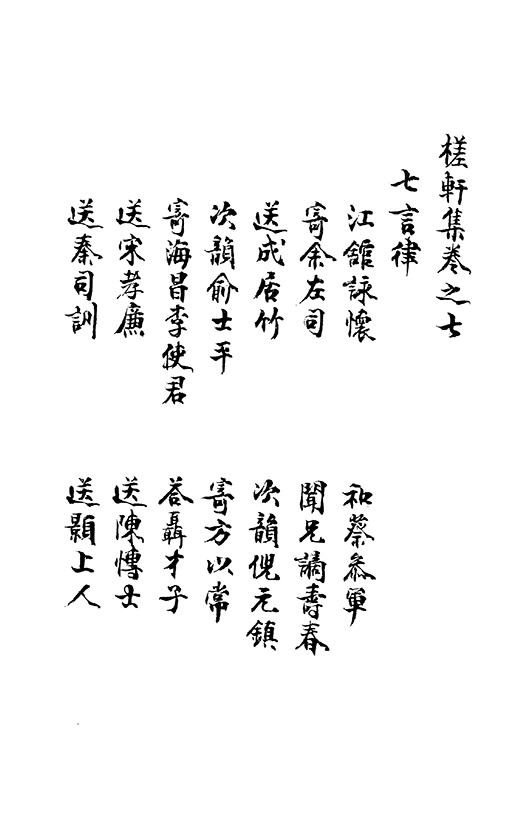 槎軒集卷之七
七言律
江館詠懷
和蔡參軍
寄余左司
聞兄謫壽春
送成居竹
次韻倪元鎮
次韻俞士平
寄方以常
寄海昌李使君
答聶才子
送宋孝廉
送陳愽士
送秦司訓
送顥上人